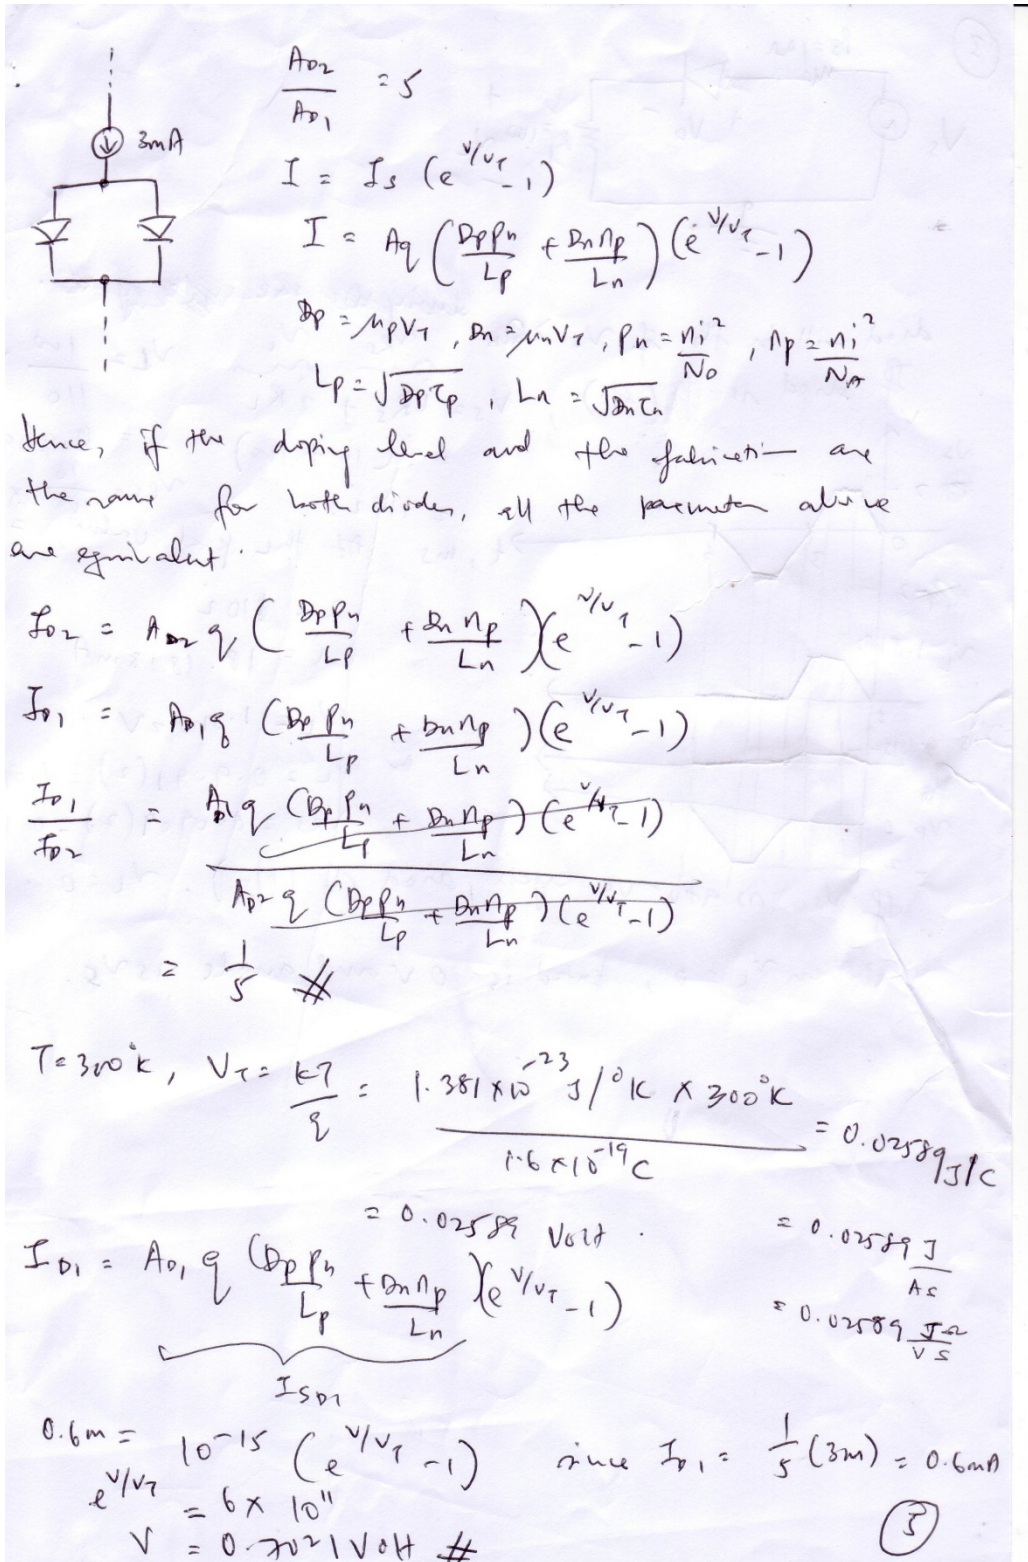 A_D2/A_D1 = 5
3mA
I = Is (e^(V/V_T) - 1)
I = Aq (DpPn/Lp + Dnnp/Ln) (e^(V/V_T) - 1)
Dp = μpV_T, Dn = μnV_T, Pn = ni²/N_D, np = ni²/N_A
Lp = √(Dpτp), Ln = √(Dnτn)
Hence, if the doping level and the fabrication are
the same for both diodes, all the parameter above
are equivalent.
I_D2 = A_D2 q (DpPn/Lp + Dnnp/Ln)(e^(V/V_T) - 1)
I_D1 = A_D1 q (DpPn/Lp + Dnnp/Ln)(e^(V/V_T) - 1)
I_D1/I_D2 = A_D1 q (DpPn/Lp + Dnnp/Ln)(e^(V/V_T) - 1)
A_D2 q (DpPn/Lp + Dnnp/Ln)(e^(V/V_T) - 1)
= 1/5 #
T = 300°K, V_T = kT/q = 1.381×10^-23 J/°K × 300°K / 1.6×10^-19 C = 0.02589 J/C
= 0.02589 Volt. = 0.02589 J/As
I_D1 = A_D1 q (DpPn/Lp + Dnnp/Ln)(e^(V/V_T) - 1) = 0.02589 JΩ/VS
I_SD1
0.6m = 10^-15 (e^(V/V_T) - 1) since I_D1 = 1/5 (3m) = 0.6mA
e^(V/V_T) = 6×10^11
V = 0.7021 Volt #
3